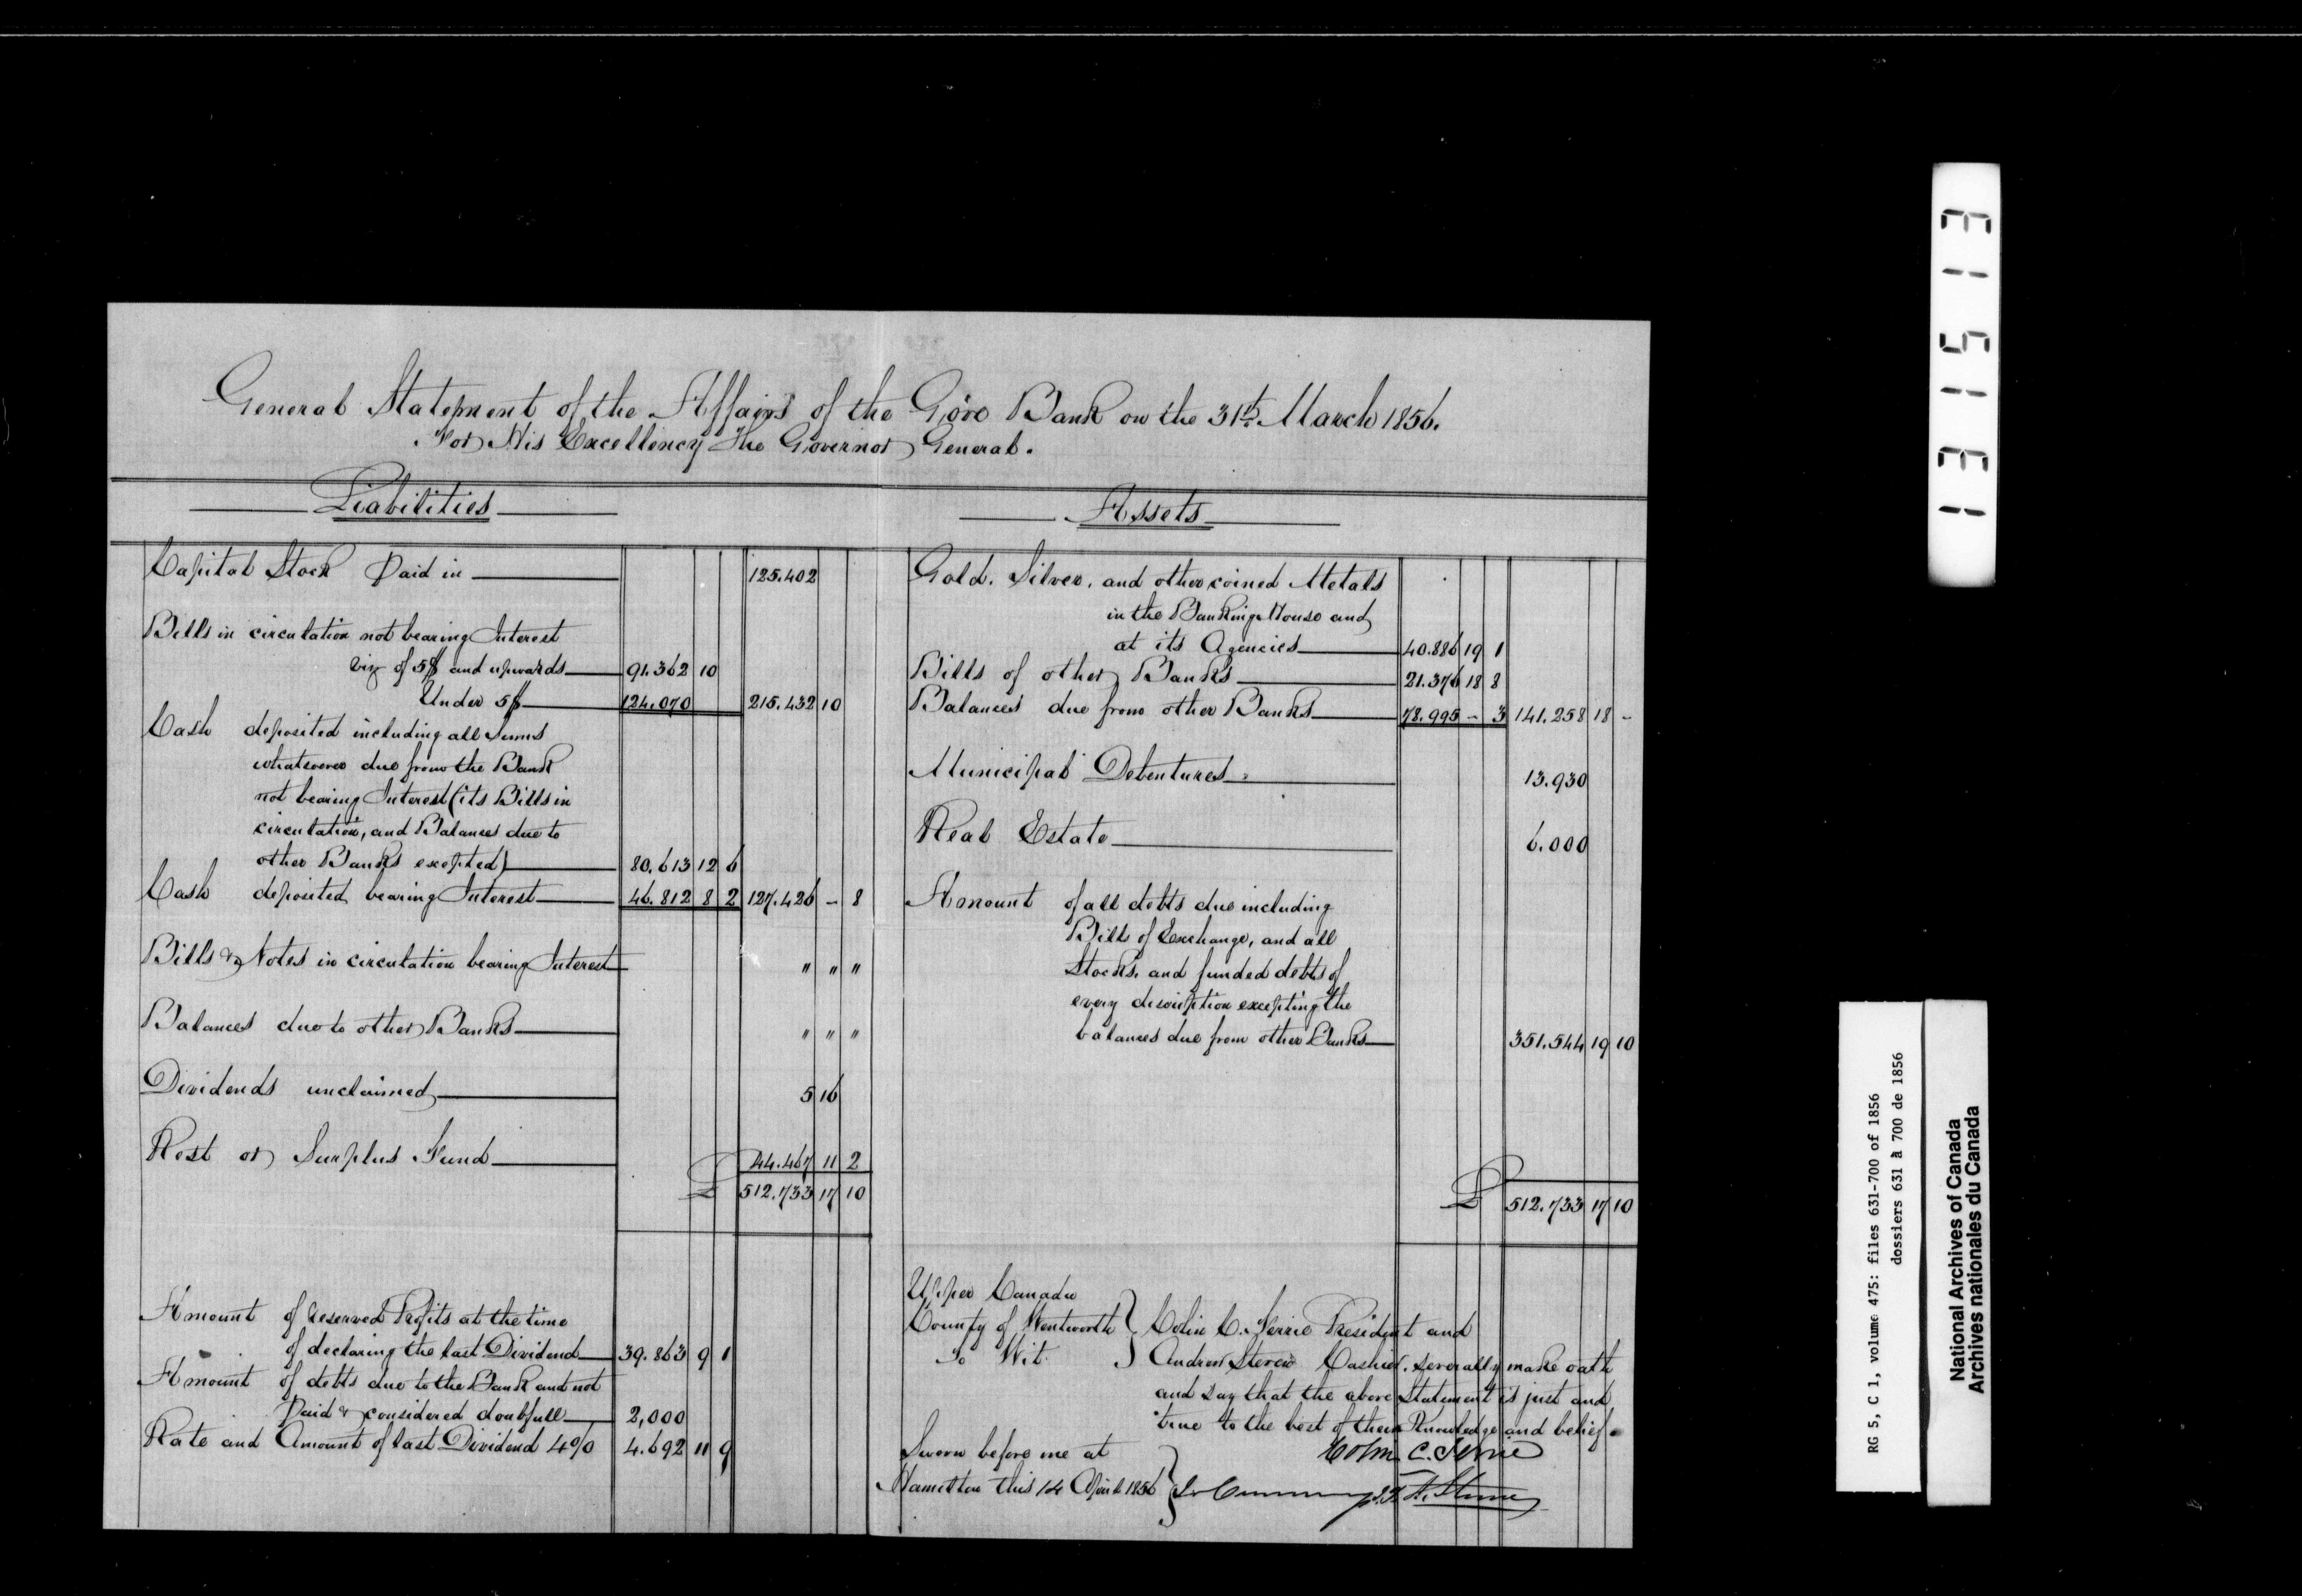 General Statement of the Affairs of the Gore Bank on the 31st March 1856.
For His Excellency The Governor General.
Liabilities
Capital Stock Paid in 125.402
Bills in circulation not bearing Interest
viz of 5$ and upwards 91.362 10
Under 5$ 124.070 215.432 10
Cash deposited including all Sums
whatsoever due from the Bank
not bearing Interest (its Bills in
circulation, and Balances due to
other Banks excepted) 80.613 12 6
Cash deposited bearing Interest 46.812 8 2 127.426 - 8
Bills & Notes in circulation bearing Interest " " "
Balances due to other Banks " " "
Dividends unclaimed 5 16
Rest or Surplus Fund 44.467 11 2
£ 512.733 17 10
Amount of reserved Profits at the time
of declaring the last Dividend 39.863 9 1
Amount of debts due to the Bank and not
Paid & considered doubtfull 2,000
Rate and Amount of last Dividend 4% 4.692 11 9
Assets
Gold. Silver. and other coined Metals
in the Banking House and
at its Agencies 40.886 19 1
Bills of other Banks 21.376 18 8
Balances due from other Banks 78.995 - 3 141.258 18 -
Municipal Debentures 13.930
Real Estate 6.000
Amount of all debts due including
Bills of Exchange, and all
Stocks. and funded debts of
every discription excepting the
balances due from other Banks 351.544 19 10
£ 512.733 17 10
Upper Canada
County of Wentworth } Colin C. Ferrie President and
To Wit. } Andrew Steven Cashier. severally make oath
and say that the above Statement is just and
true to the best of their Knowledge and belief.
Sworn before me at Colin C. Ferrie
Hamilton this 14 April 1856 } J.P. A. Steven
131513
RG 5, C 1, volume 475: files 631-700 of 1856
dossiers 631 à 700 de 1856
National Archives of Canada
Archives nationales du Canada